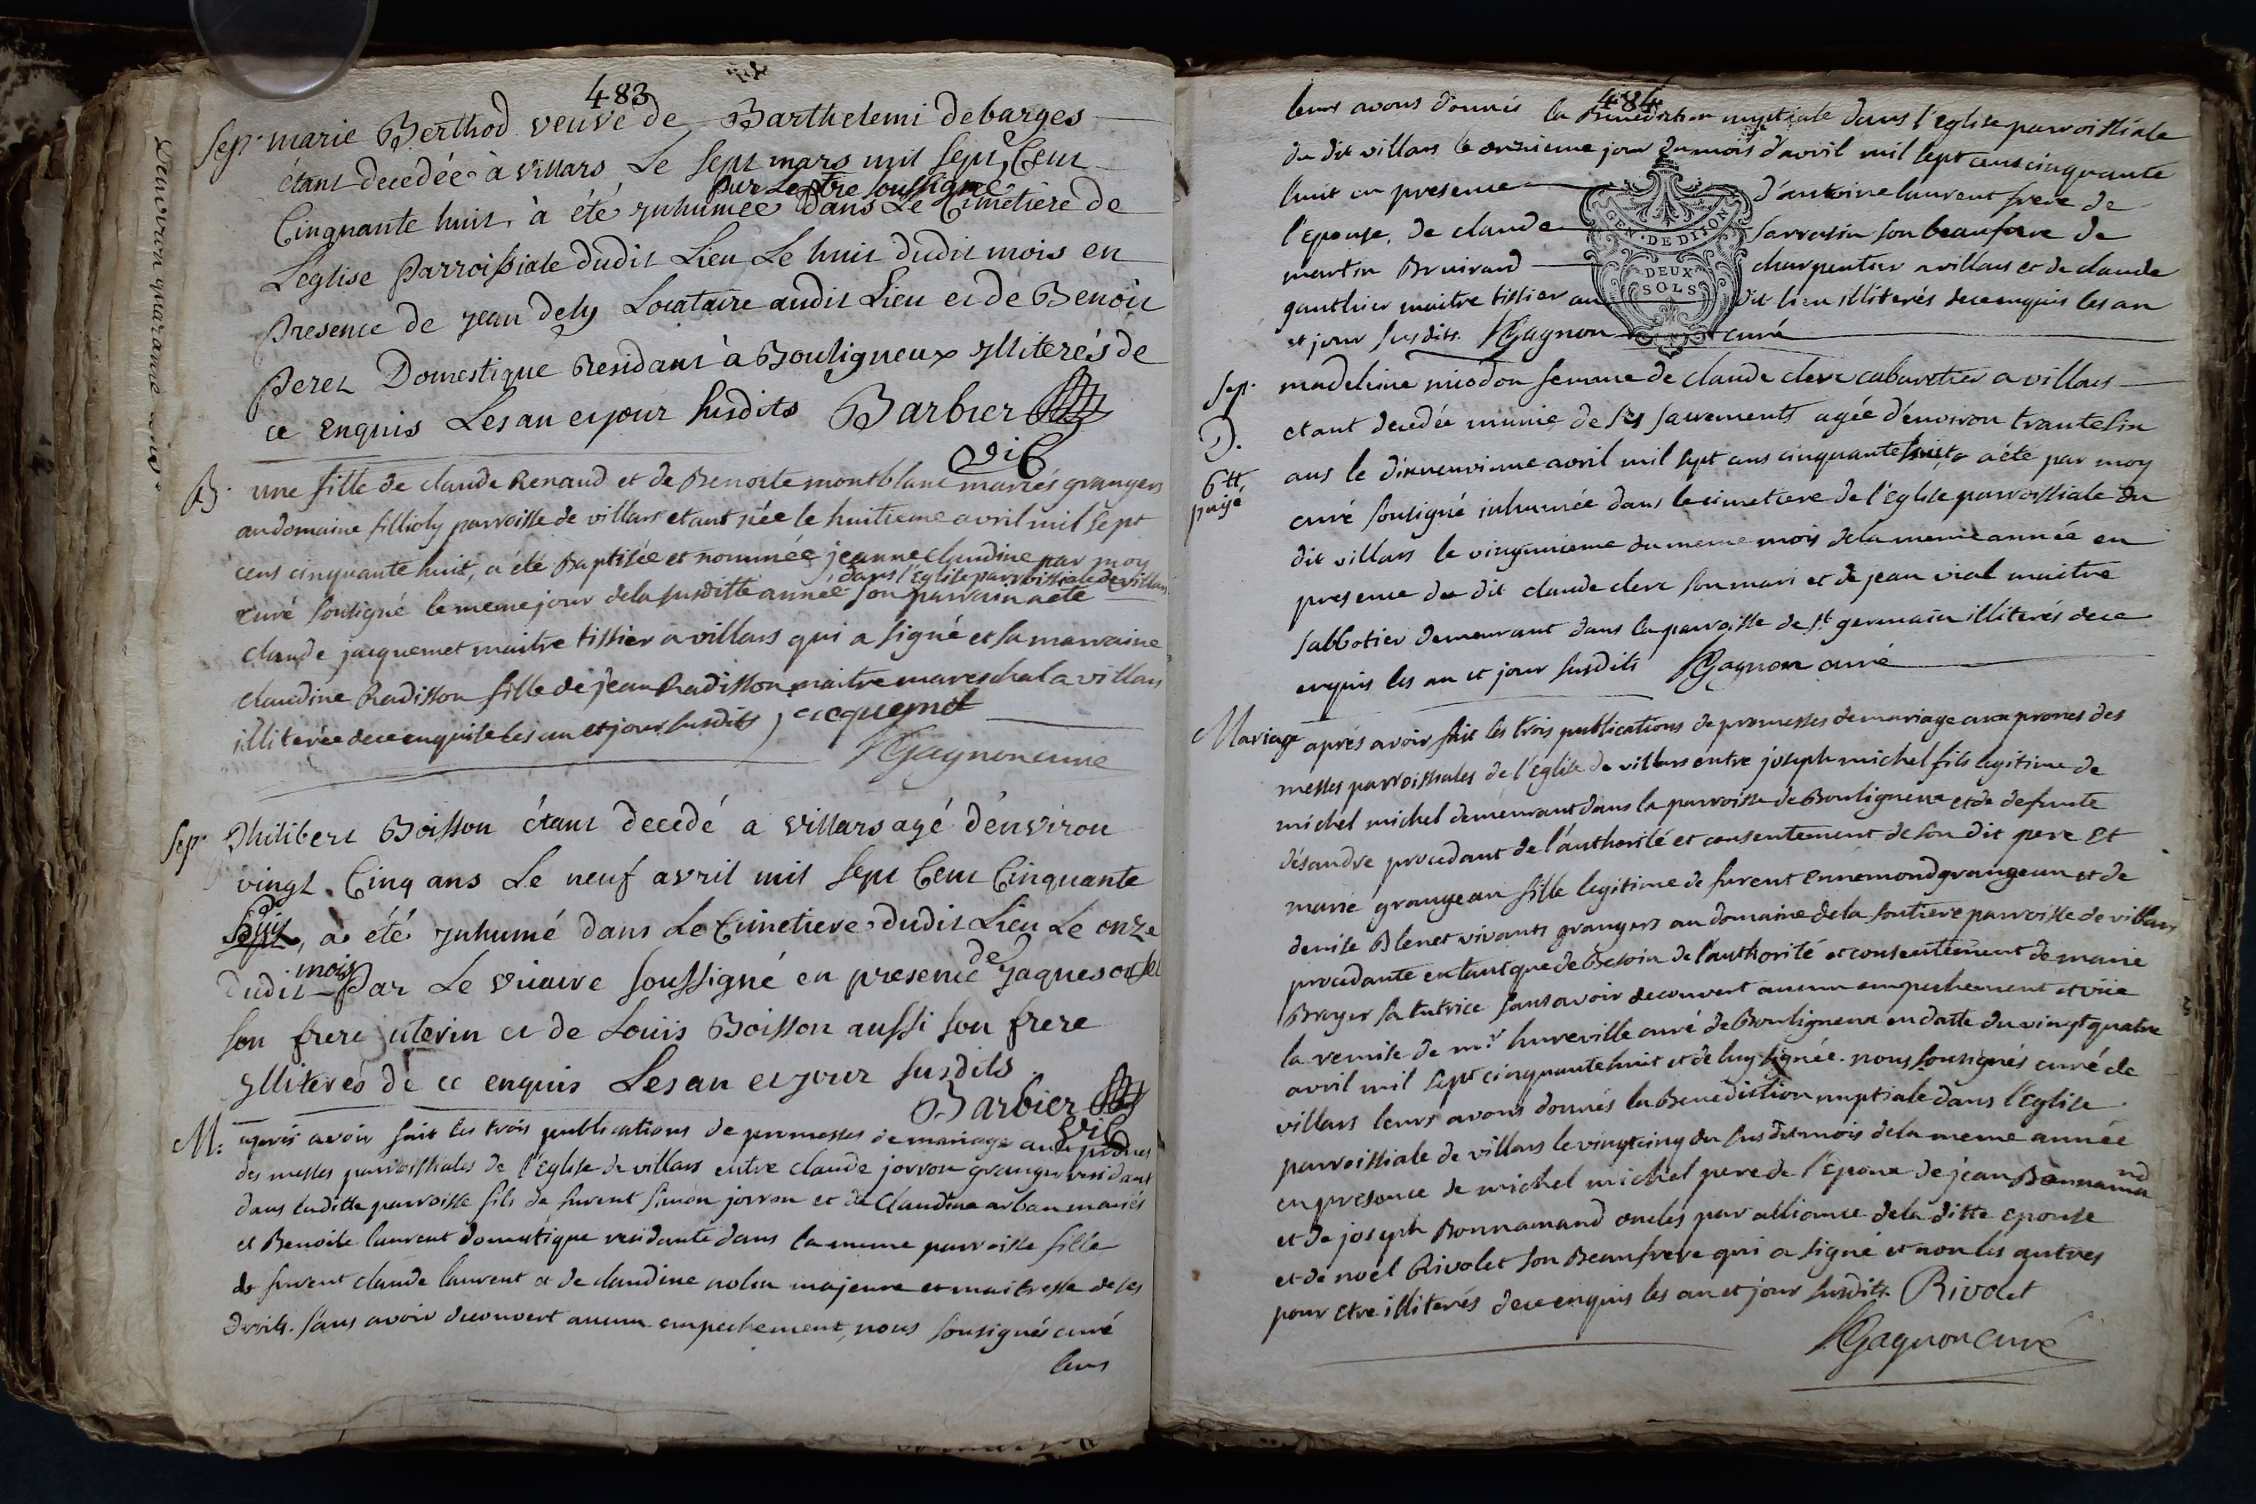 483
Sep.r marie Berthod veuve de Barthelemi debarges
étant decedée à villars Le sept mars mil sept Cent
par Le ptre soussigné
Cinquante huit, à été ynhumée dans Le Cimetiere de
L'eglise Parroissiale dudit Lieu Le huit dudit mois en
presence de jean dely Locataire audit Lieu et de Benoit
Perez Domestique Residant à Bouligneux ylliterés de
ce enquis Les an et jour susdits Barbier
vic
B. une fille de claude Renaud et de Benoite montblanc mariés grangers
au domaine fillioly parroisse de villars etant née le huitieme avril mil sept
cens cinquante huit, a été Baptisée et nommée jeanne claudine par moy
dans l'Eglise parroissiale de villars
curé sousigné le meme jour de la susditte année son parrain a eté
claude jacquemet maitre tissier a villars qui a signé et sa marraine
claudine Radisson fille de jean Radisson maitre mareschal a villars
illiterée de ce enquise les an et jour susdits jacquemet
Gagnon curé
Sep.r Philibert Boisson étant decedé a villars agé d'environ
vingt Cinq ans Le neuf avril mil sept Cent Cinquante
huit, a été ynhumé dans Le Cimetiere dudit Lieu Le onze
mois
dudit Par Le vicaire soussigné en presence de Jaques
son frere uterin et de Louis Boisson aussi son frere
ylliterés de ce enquis Les an et jour susdits
Barbier
vic
M. aprés avoir fait les trois publications de promesses de mariage aux prones
des messes parroissiales de l'Eglise de villars entre claude jorron granger residant
dans laditte parroisse fils de furent simon jorron et de claudine arban mariés
et Benoite laurent domestique residante dans la meme parroisse fille
de furent claude laurent et de claudine nolin majeure et maitresse de ses
droits. sans avoir decouvert aucun empechement, nous sousignés curé
leurs
484
leurs avons donnés la Benediction nuptiale dans l'Eglise parroissiale
du dit villars le onzieme jour du mois d'avril mil sept cent cinquante
huit en presence d'antoine laurent frere de
l'Epouse, de claude sarrasin son beaufrere de
martin Bruirard charpentier a villars et de claude
gauthier maitre tissier au dit lieu illiterés de ce enquis les an
et jour susdits. Gagnon curé
GEN. DE DIJON
DEUX
SOLS
Sep. madeleine miodon femme de claude clerc cabaretier a villars
D. etant decedée munie de ses sacrements agée d'environ trante six
6tt ans le dixneuvieme avril mil sept ans cinquante huit, a été par moy
payé curé sousigné inhumée dans le cimetiere de l'Eglise parroissiale du
dit villars le vingtunieme du meme mois de la meme année en
presence du dit claude clerc son mari et de jean vial maitre
sabbotier demeurant dans la parroisse de st germain illiterés de ce
enquis les an et jour susdits Gagnon curé
Mariage aprés avoir fait les trois publications de promesses de mariage aux prones des
messes parroissiales de l'Eglise de villars entre joseph michel fils legitime de
michel michel demeurant dans la parroisse de Bouligneux et de defunte
désandre procedant de l'authorité et consentement de son dit pere Et
marie grangean fille legitime de furent Ennemond grangean et de
denise Blenet vivants grangers au domaine de la soutiere parroisse de villars
procedante en tant que de Besoin de l'authorité et consentement de marie
Broyer sa tutrice sans avoir decouvert aucun empechement et vüe
la remise de mr. hureville curé de Bouligneux en datte du vingt quatre
avril mil sept cinquante huit et de luy signée. nous sousignés curé de
villars leurs avons donnés la Benediction nuptiale dans l'Eglise
parroissiale de villars le vingt cinq du sus dit mois de la meme année
en presence de michel michel pere de l'Epoux de jean Bonnamand
et de joseph Bonnamand oncles par alliance de la ditte epouse
et de noël Rivolet son Beaufrere qui a signé et non les autres
pour etre illiterés de ce enquis les an et jour susdits. Rivolet
Gagnon Curé